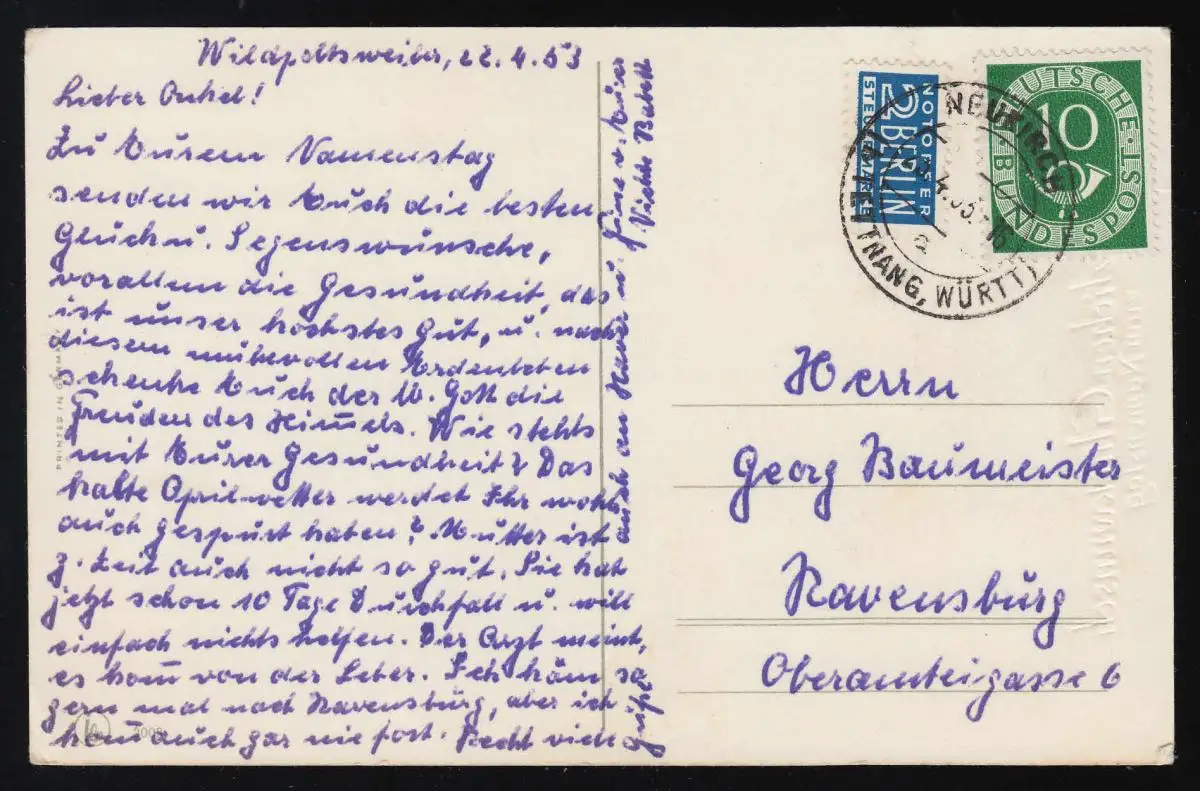 Wildpoltsweiler, 22.4.53
Lieber Onkel!
Zu Eurem Namenstag
senden wir Euch die besten
Glück u. Segenswünsche,
vorallem die Gesundheit, das
ist unser höchstes Gut, u. nach
diesem mühevollen Erdenleben
schenke Euch der lb. Gott die
Freuden des Himmels. Wie stehts
mit Eurer Gesundheit? Das
kalte Aprilwetter werdet Ihr wohl
auch gespürt haben? Mutter ist
z. Zeit auch nicht so gut. Sie hat
jetzt schon 10 Tage Durchfall u. will
einfach nichts helfen. Der Arzt meint,
es kom̅ von der Leber. Ich käm so
gern mal nach Ravensburg, aber ich
kom̅ auch gar nie fort. Recht viele
Grüße
auch an Xaver u. Fine v. Eurer
Nichte Babett
PRINTED IN GERMANY
NOTOPFER
2 BERLIN
STEUERMARKE
DEUTSCHE BUNDESPOST
10
NEUKIRCH
(TETTNANG, WÜRTT)
Herrn
Georg Baumeister
Ravensburg
Oberamteigasse 6